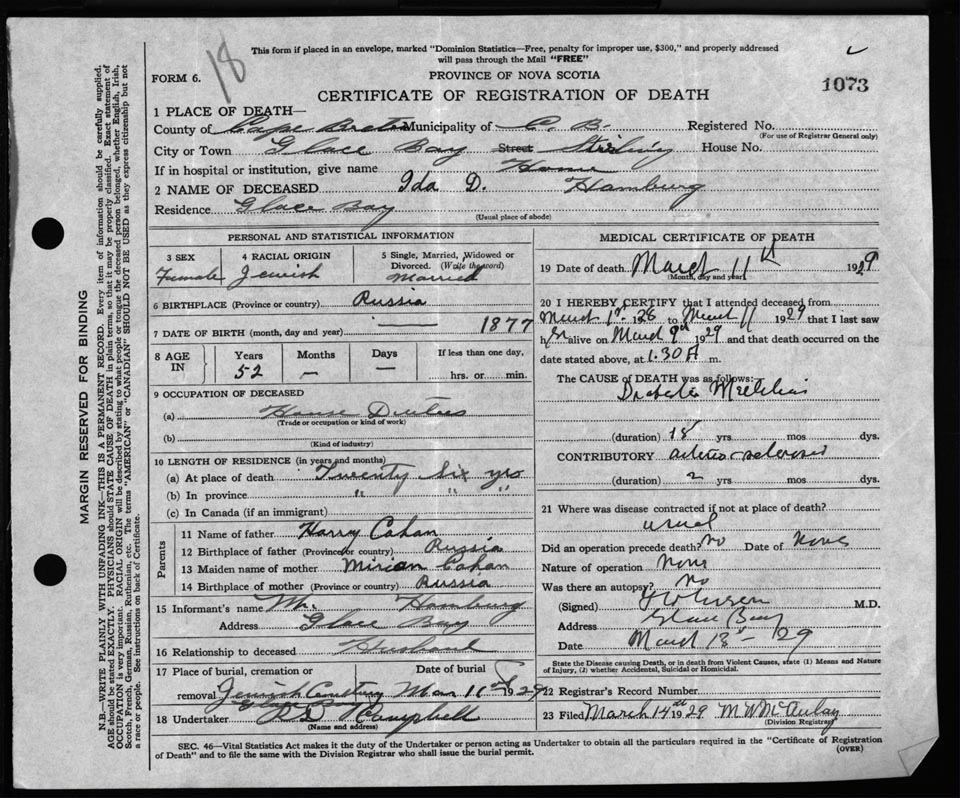 18
This form if placed in an envelope, marked "Dominion Statistics—Free, penalty for improper use, $300," and properly addressed
will pass through the Mail "FREE"
FORM 6.
PROVINCE OF NOVA SCOTIA
1073
CERTIFICATE OF REGISTRATION OF DEATH
1 PLACE OF DEATH—
County of Cape Breton Municipality of C. B. Registered No.
(For use of Registrar General only)
City or Town Glace Bay Street Stirling House No.
If in hospital or institution, give name Home
2 NAME OF DECEASED Ida D. Hamburg
Residence Glace Bay
(Usual place of abode)
PERSONAL AND STATISTICAL INFORMATION
3 SEX Female
4 RACIAL ORIGIN Jewish
5 Single, Married, Widowed or Divorced. (Write the word) Married
6 BIRTHPLACE (Province or country) Russia
7 DATE OF BIRTH (month, day and year) — 1877
8 AGE IN
Years Months Days If less than one day,
52 — — hrs. or min.
9 OCCUPATION OF DECEASED
(a) House Duties
(Trade or occupation or kind of work)
(b)
(Kind of industry)
10 LENGTH OF RESIDENCE (in years and months)
(a) At place of death Twenty Six yrs
(b) In province " " "
(c) In Canada (if an immigrant)
Parents
11 Name of father Harry Cahan
12 Birthplace of father (Province or country) Russia
13 Maiden name of mother Miriam Cahan
14 Birthplace of mother (Province or country) Russia
15 Informant's name Wm. Hamburg
Address Glace Bay
16 Relationship to deceased Husband
17 Place of burial, cremation or Date of burial
removal Jewish Cemetery Mar 11th 1929
Glace Bay
18 Undertaker Campbell
(Name and address)
MEDICAL CERTIFICATE OF DEATH
19 Date of death March 11th 1929
(Month, day and year)
20 I HEREBY CERTIFY that I attended deceased from
March 1st 1928 to March 11 1929 that I last saw
her alive on March 9th 1929 and that death occurred on the
date stated above, at 1.30 A m.
The CAUSE of DEATH was as follows:
Diabetes Mellitus
(duration) 15 yrs mos dys.
CONTRIBUTORY arterio-sclerosis
(duration) 2 yrs mos dys.
21 Where was disease contracted if not at place of death?
usual
Did an operation precede death? no Date of None
Nature of operation None
Was there an autopsy? No
(Signed) M.D.
Address Glace Bay
Date March 13th - 29
State the Disease causing Death, or in death from Violent Causes, state (1) Means and Nature
of Injury, (2) whether Accidental, Suicidal or Homicidal.
22 Registrar's Record Number
23 Filed March 14th 1929 M W McAulay
(Division Registrar)
SEC. 46—Vital Statistics Act makes it the duty of the Undertaker or person acting as Undertaker to obtain all the particulars required in the "Certificate of Registration
of Death" and to file the same with the Division Registrar who shall issue the burial permit.
(OVER)
MARGIN RESERVED FOR BINDING
N.B.—WRITE PLAINLY WITH UNFADING INK—THIS IS A PERMANENT RECORD. Every item of information should be carefully supplied.
AGE should be stated EXACTLY. PHYSICIANS should STATE CAUSE OF DEATH in plain terms, so that it may be properly classified. Exact statement of
OCCUPATION is very important. RACIAL ORIGIN will be described by stating to what people or tongue the deceased person belonged, whether English, Irish,
Scotch, French, German, Russian, Ruthenian, etc. The terms "AMERICAN" or "CANADIAN" SHOULD NOT BE USED as they express citizenship but not
a race or people. See instructions on back of Certificate.